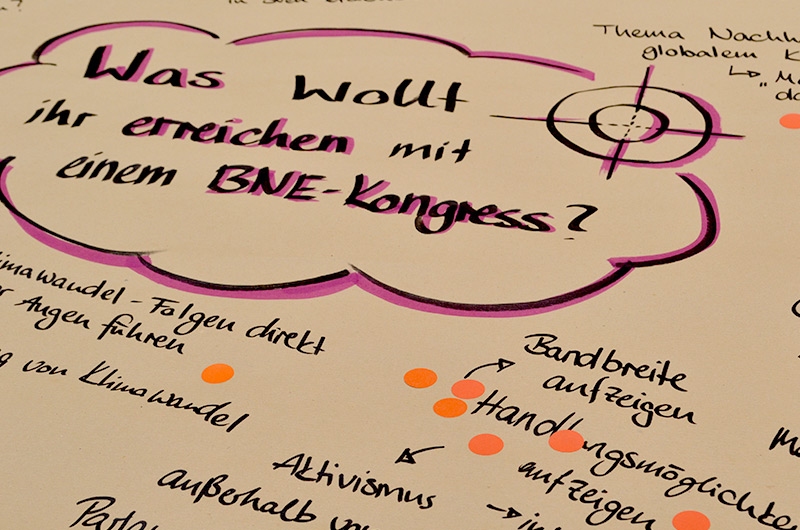 Was Wollt
ihr erreichen mit
einem BNE-Kongress?
Thema Nachh
globalem K
Folgen direkt
Augen führen
von Klimawandel
Bandbreite
aufzeigen
Handlungsmöglichke
aufzeigen
Aktivismus
außerhalb